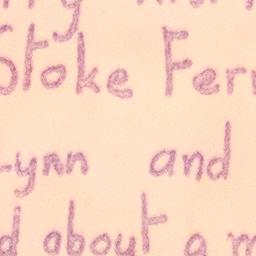 Stoke Fer
Lynn and
d about a